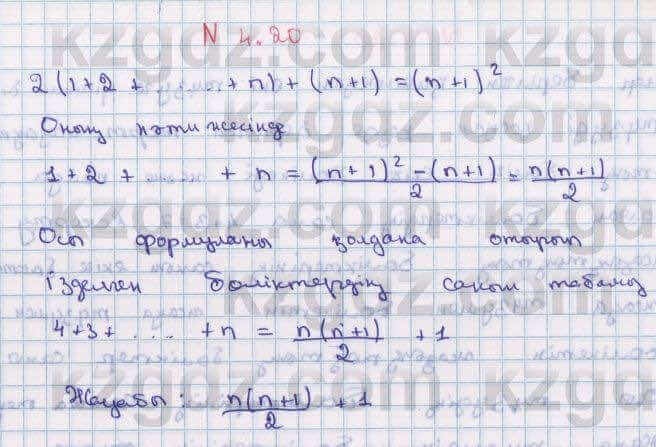 N 4.20
2(1+2+ ... +n)+(n+1)=(n+1)²
Оның нәтижесінде
1+2+ ... + n = ((n+1)²-(n+1))/2 = n(n+1)/2
Осы формуланы қолдана отырып
ізделген бөліктердің санын табамыз
4+3+ ... +n = n(n+1)/2 +1
Жауабы: n(n+1)/2 +1